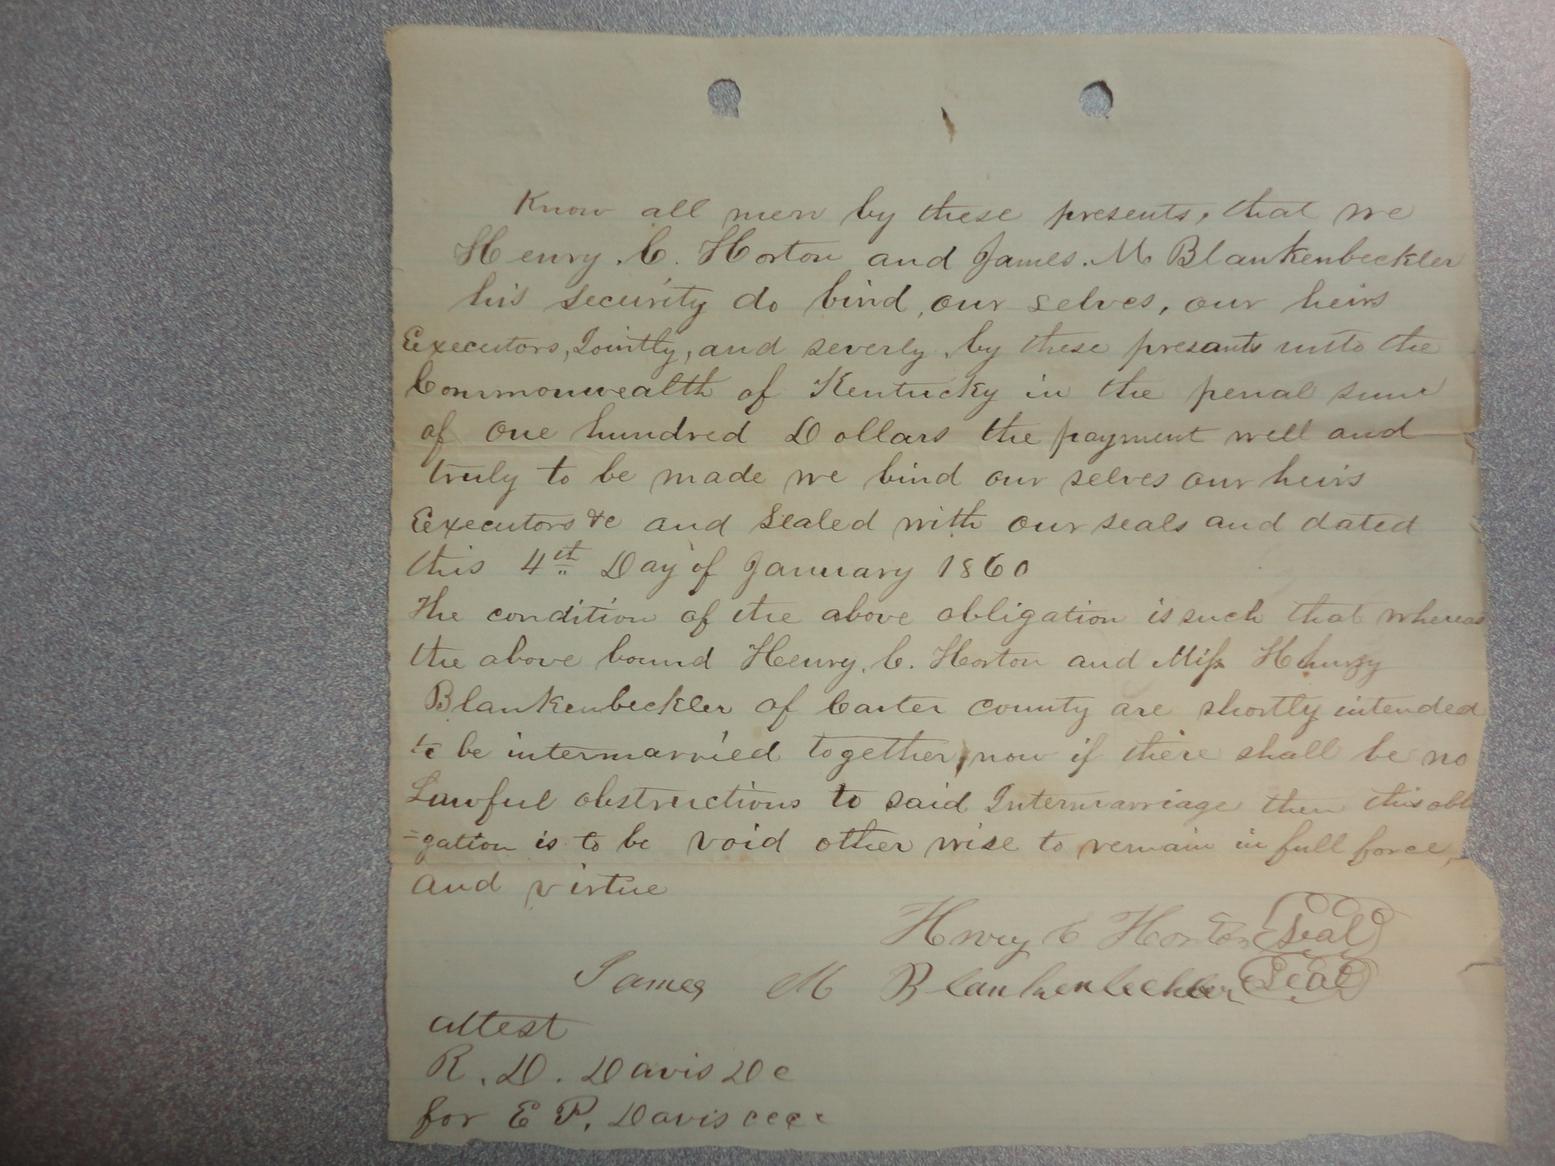 Know all men by these presents, that we
Henry. C. Horton and James. M Blankenbeckler
his security do bind, our selves, our heirs
Executors, Jointly, and severly, by these presants unto the
Commonwealth of Kentucky in the penal sum
of One hundred Dollars the payment well and
truly to be made we bind our selves our heirs
Executors &c and Sealed with our seals and dated
this 4th Day of January 1860
The condition of the above obligation is such that whereas
the above bound Henry. C. Horton and Miss
Blankenbeckler of Carter county are shortly intended
to be intermarried together, now if there shall be no
Lawful obstructions to said Intermarriage then this obli
=gation is to be void other wise to remain in full force,
and virtue
Henry C Horton Seal
James M Blankenbeckler Seal
attest
R. D. Davis DC
for E P. Davis cccc